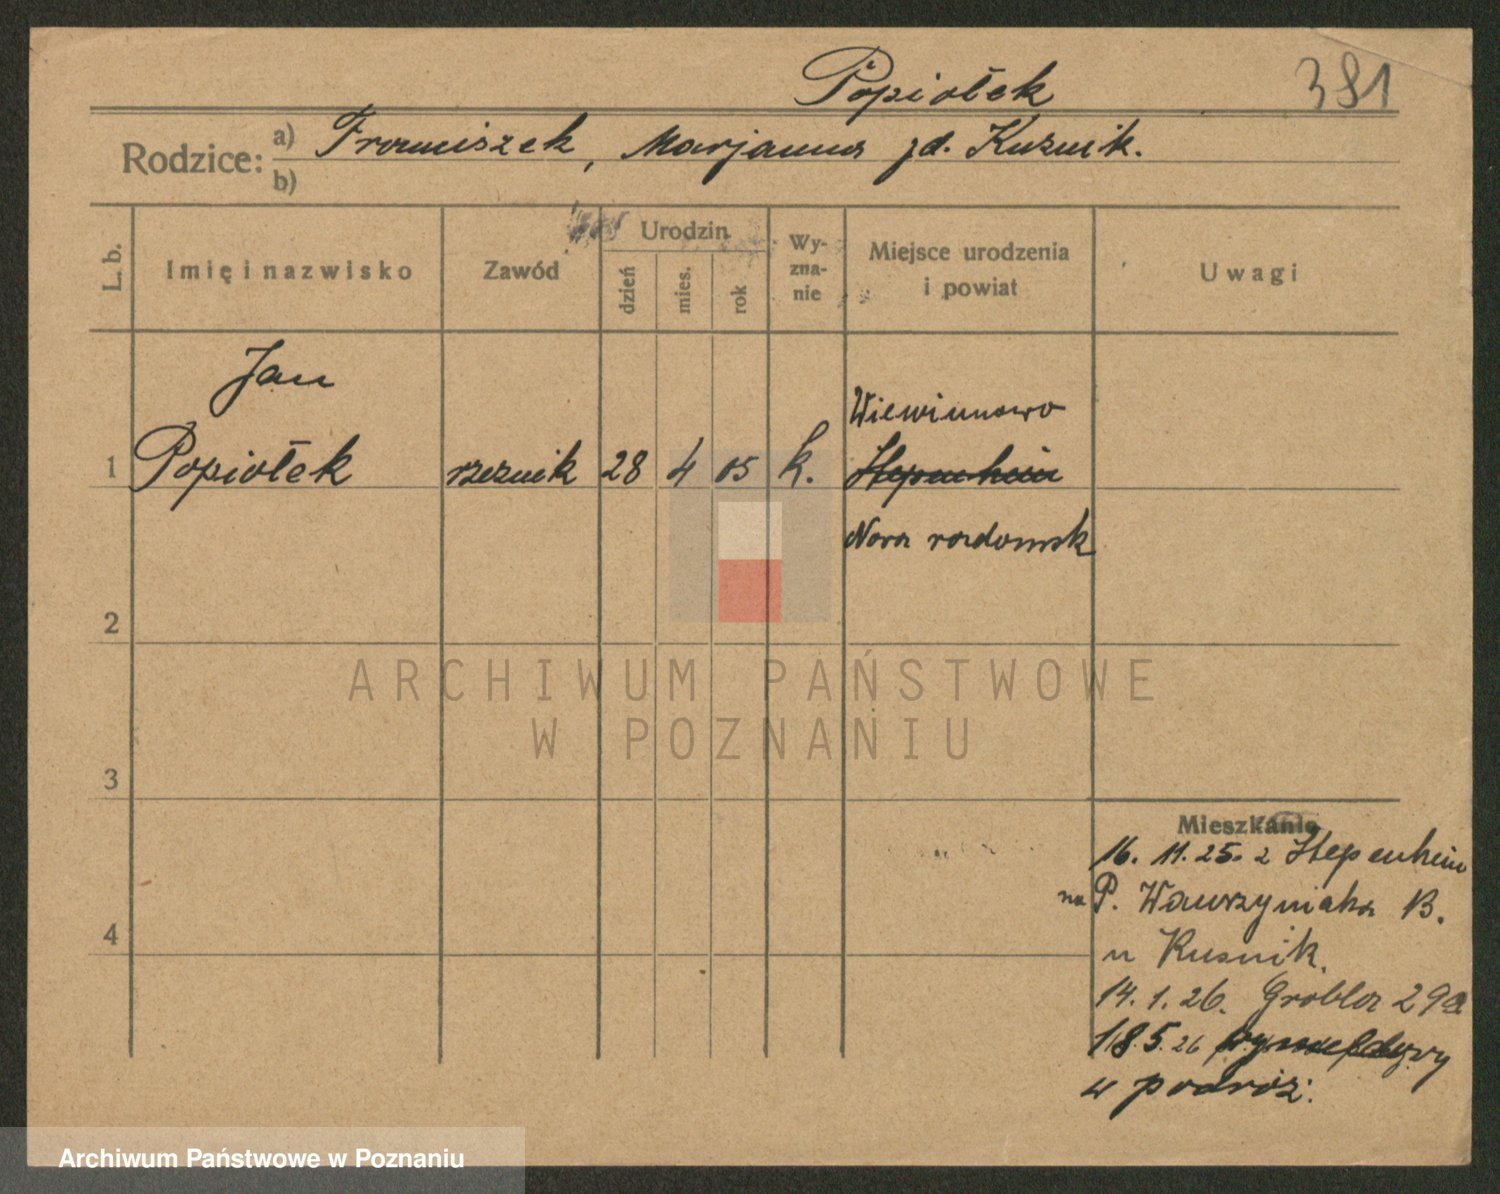 Popiołek 381
Rodzice: a) Franciszek, Marjanna zd. Kuźnik.
b)
L. b. Imię i nazwisko Zawód Urodzin dzień mies. rok Wyznanie Miejsce urodzenia i powiat Uwagi
Jan
Wiewiunowo
1 Popiołek rzeznik 28 4 05 k. Stepenhein
Nova radomsk
2
ARCHIWUM PAŃSTWOWE
W POZNANIU
3
Mieszkanie
16. 11. 25. z Stepenhein
na P. Wawrzyniaka B.
4
u Kusnik.
14. 1. 26. Grobla 29a
18. 5. 26
w podróż.
Archiwum Państwowe w Poznaniu